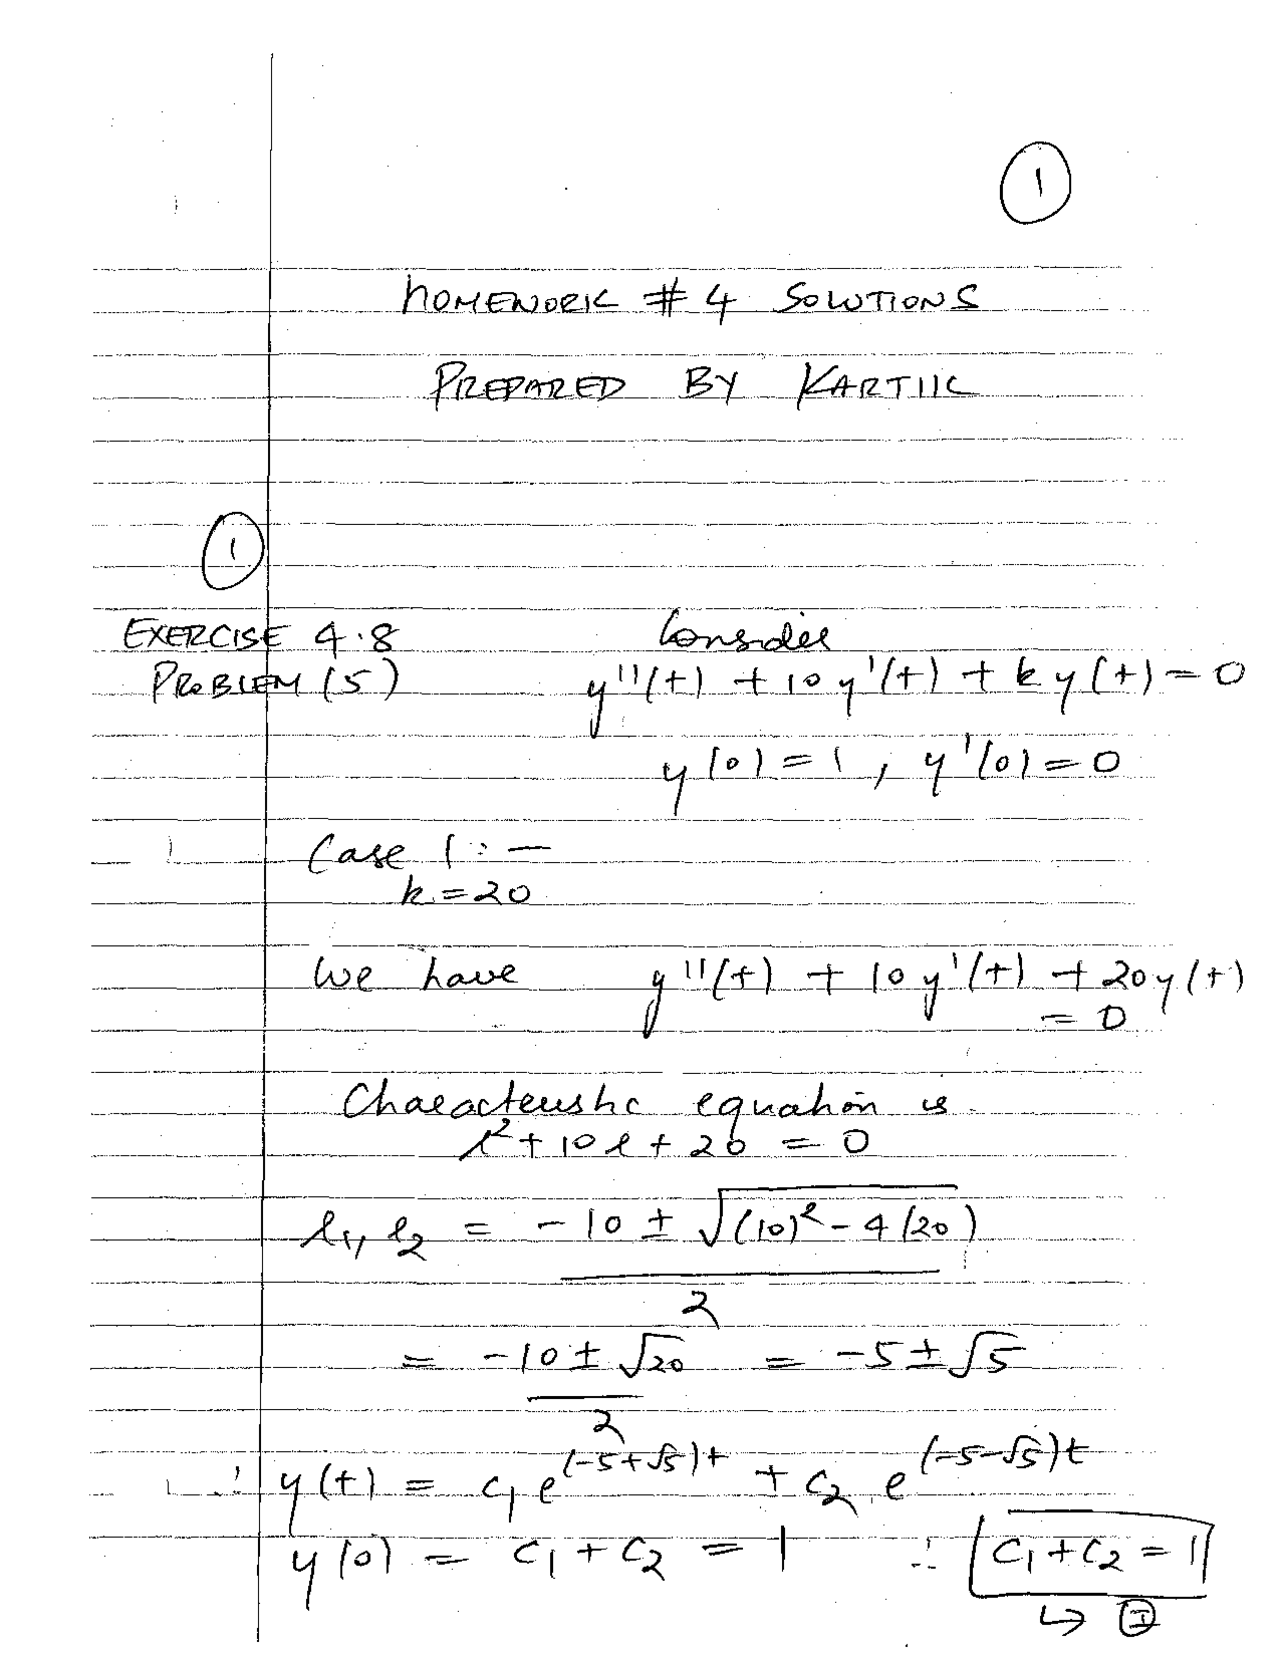 1
HOMEWORK # 4 SOLUTIONS
PREPARED BY KARTIIK
1
EXERCISE 4.8 Consider
PROBLEM (5) y''(t) + 10y'(t) + ky(t) = 0
y(0) = 1, y'(0) = 0
Case 1 : —
k = 20
We have y''(t) + 10y'(t) + 20y(t)
= 0
Characteristic equation is
r² + 10r + 20 = 0
r₁, r₂ = -10 ± √(10)² - 4(20)
2
= -10 ± √20 = -5 ± √5
2
∴ y(t) = c₁ e^(-5+√5)t + c₂ e^(-5-√5)t
y(0) = c₁ + c₂ = 1 ∴ c₁ + c₂ = 1
↳ I